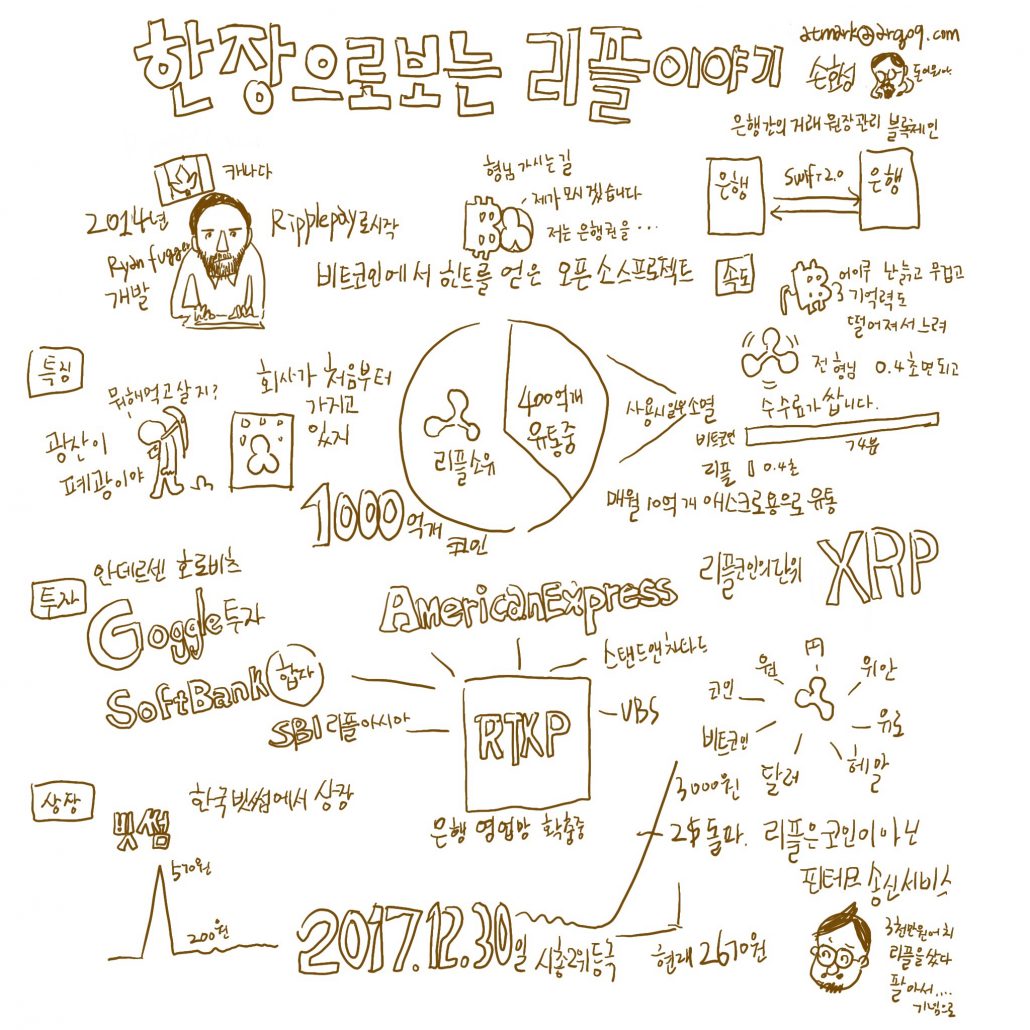 한장으로보는 리플이야기
atmark@argo9.com
손화성
은행간의 거래 원장관리 블록체인
은행
Swift 2.0
은행
카나다
2014년
Ryan fugger
개발
Ripplepay로시작
형님 가시는 길
제가 모시겠습니다
저는 은행권을 ...
비트코인에서 힌트를 얻은 오픈소스프로젝트
속도
어이쿠 난 늙고 무겁고
기억력도
떨어져서 느려
전 형님 0.4초면 되고
수수료가 쌉니다.
비트코인
74분
리플 0.4초
특징
뭐해먹고 살지?
광산이
폐광이야
회사가 처음부터
가지고
있지
리플소유
400억개
유통중
사용시 일부 소멸
1000억개
코인
매월 10억개 애스크로용으로 유통
투자
안데르센 호로비츠
Goggle투자
SoftBank 합자
SBI 리플아시아
AmericanExpress
스탠드앤차타드
UBS
RTKP
은행 영업망 확충중
리플코인의 단위
XRP
원
円
위안
코인
유로
비트코인
달러
헤알
상장
한국 빗썸에서 상장
빗썸
570원
200원
2017.12.30일
시총2위등극
3000원
2$돌파.
현재 2670원
리플은 코인이 아닌
핀테크 송신서비스
3천만원어치
리플을 샀다
팔아서....
기념으로